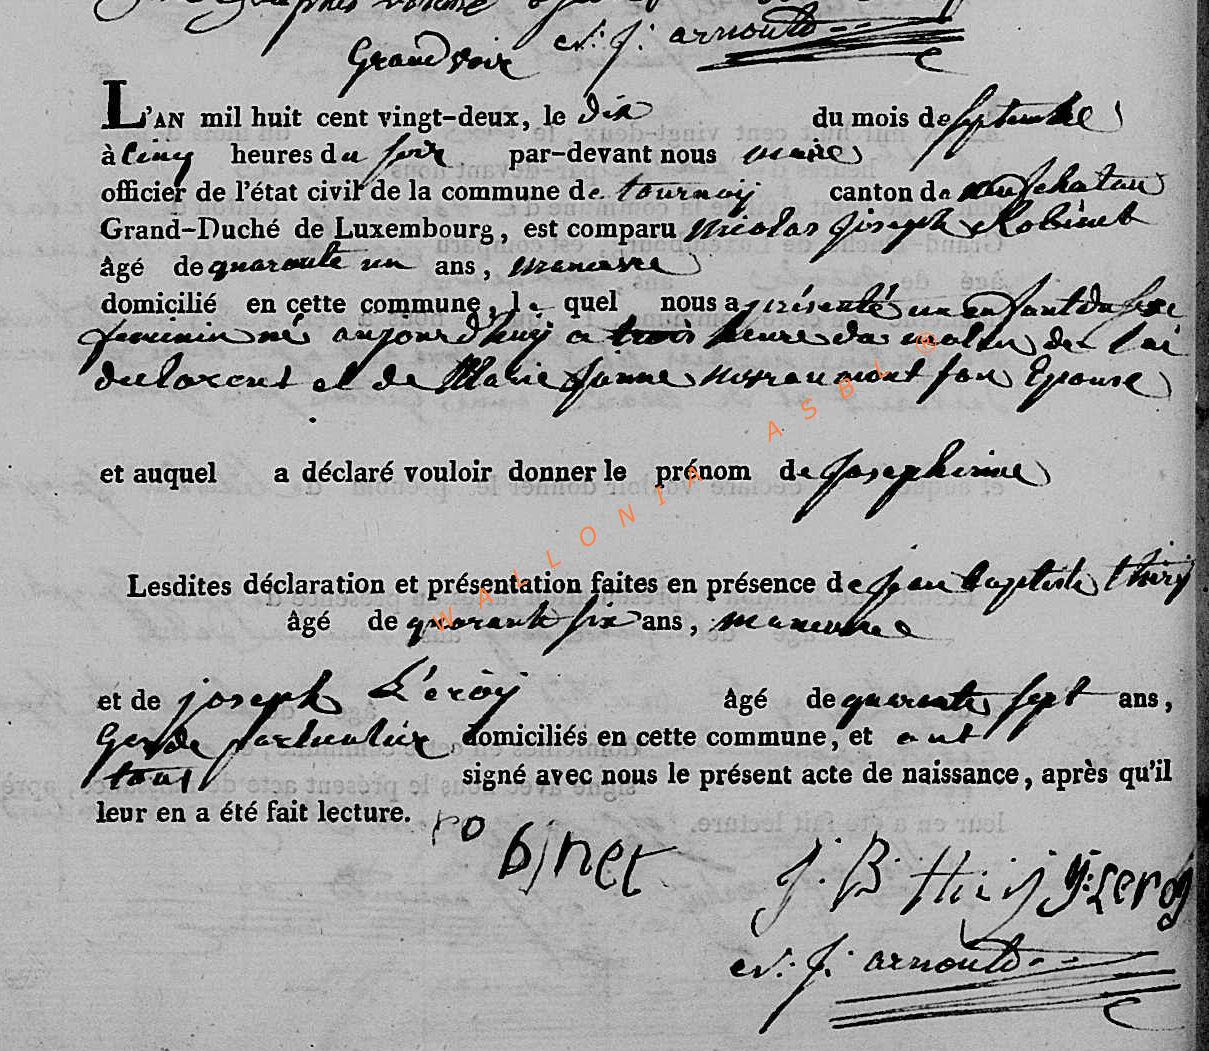 Grandvoir N: J: arnould
L'AN mil huit cent vingt-deux, le dix du mois de septembre
à cinq heures du soir par-devant nous maire
officier de l'état civil de la commune de tournay canton de neufchatau
Grand-Duché de Luxembourg, est comparu Nicolas Joseph Robinet
âgé de quarante un ans, maneuvre
domicilié en cette commune, le quel nous a présenté un enfant du sexe
feminin né aujourd'huy a trois heure du matin de lui
declarent et de Marie Jeanne son Epouse
et auquel a déclaré vouloir donner le prénom de Josephinne
Lesdites déclaration et présentation faites en présence de jean baptiste thiry
âgé de quarante six ans, maneuvre
et de joseph Leroy âgé de quarante sept ans,
Garde particulier domiciliés en cette commune, et ont
tous signé avec nous le présent acte de naissance, après qu'il
leur en a été fait lecture.
robinet J: B thiry j: Leroy
N: J: arnould
WALLONIA ASBL ®